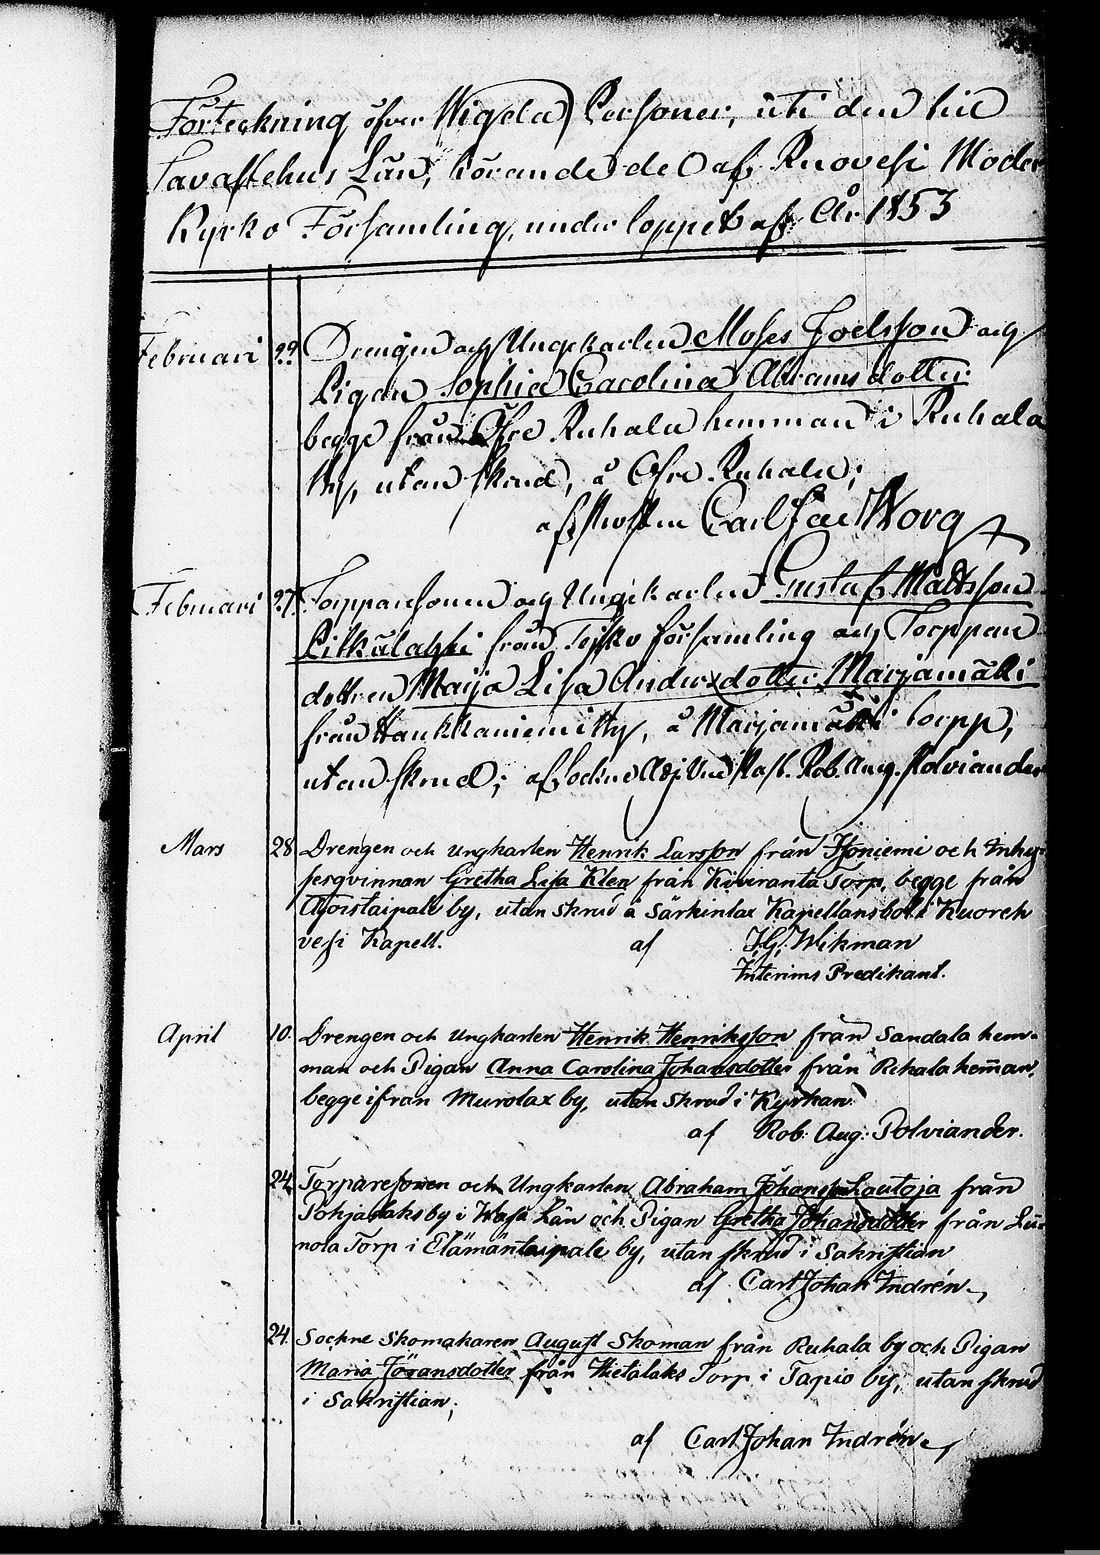 Förteckning öfver Wigela Personer, uti den till
Tavastehus Län, hörande del af Ruovesi Moder
Kyrko Församling, under loppet af År 1853
Februari 22 Drengen och Ungkarlen Moses Joelsson och
Pigan Sophia Carolina Abramsdotter
begge från Öfre Ruhala hemman i Ruhala
by, utan skrud, å Öfre Ruhala;
af Carl Jac Worg
Februari 27. Torpparsonen och Ungkarlen Gustaf Mattsson
Pitkälahti från Teisko församling och Torppare
dottren Maija Lisa Andersdotter Marjamäki
från Haukkaniemi by, å Marjamäki torpp,
utan skrud; af Sockne Adj. Rob. Aug. Polviander
Mars 28 Drengen och Ungkarlen Henrik Larsson från Isoniemi och Inhy-
sesqvinnan Gretha Lisa Klen från Kiviranta Torp, begge från
by, utan skrud å Särkilax Kapellansboll i Kuoreh
vesi Kapell. af J.G. Wikman
Interims Predikant.
April 10. Drengen och Ungkarlen Henrik Henriksson från Sandala hem-
man och Pigan Anna Carolina Johansdotter från Rekala heman,
begge ifrån Murolax by, utan skrud i Kyrkan.
af Rob. Aug: Polviander.
24 Torparesonen och Ungkarlen Abraham Johansson Lautoja från
Pohjaslaks by i Wasa Län och Pigan Gretha Johansdotter från
nola Torp i Elämäntaipale by, utan skrud i Sakristian
af Carl Johan Indrén
24. Sockne Skomakaren August Skoman från Ruhala by och Pigan
Maria Göransdotter från Hietalaks Torp i Tapio by, utan skrud
i Sakristian;
af Carl Johan Indrén